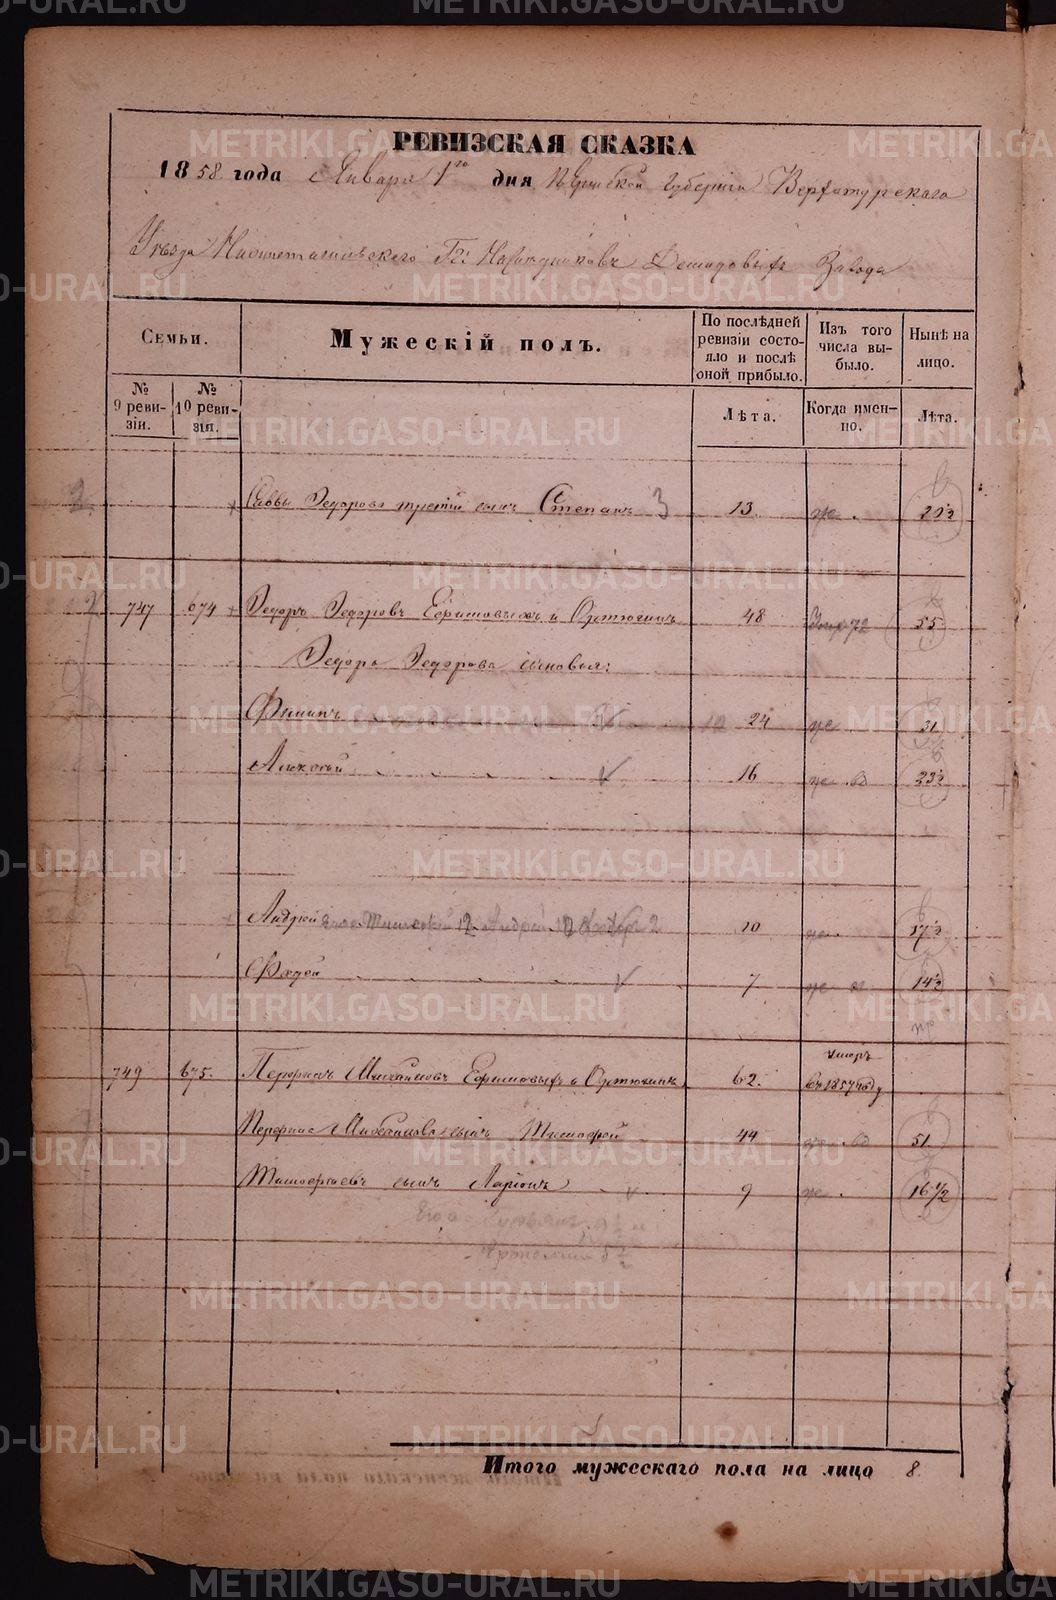 METRIKI.GASO-URAL.RU
РЕВИЗСКАЯ СКАЗКА
1858 года Января 1го дня Пермской губернiи Верхотурскаго
Уѣзда Нижнетагильскаго Гг: Наслѣдниковъ Демидовыхъ Завода
Семьи.
Мужескiй полъ.
По послѣдней ревизiи состояло и послѣ оной прибыло.
Изъ того числа выбыло.
Нынѣ на лицо.
№ 9 ревизiи.
№ 10 ревизiя.
Лѣта.
Когда именно.
Лѣта.
Саввы Федорова третiй сынъ Степанъ 3 13. 20½
747 674 Федоръ Федоровъ Ефимовыхъ и Ортюгинъ 48 55
Федора Федорова сыновья:
Филипъ 24 31
Алексѣй 16 23½
Андрей 10 17½
Фадей 7 14½
749 675. Перфилъ Михайловъ Ефимовыхъ и Ортюгинъ 62. умеръ въ 1857 году
Перфила Михайлова сынъ Тимофей 44 51
Тимофеевъ сынъ Ларiонъ 9 16 1/2
Итого мужескаго пола на лицо 8.